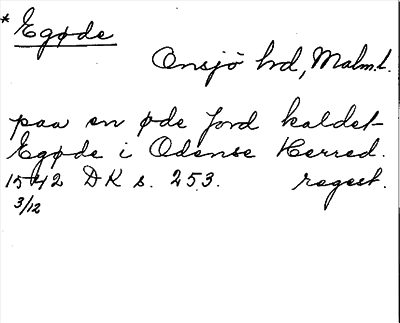 * Egøde
Onsjö hrd, Malm. l.
paa en øde Jord kaldet
Egøde i Odense Herred.
1542 DK s. 253. regest.
3/12